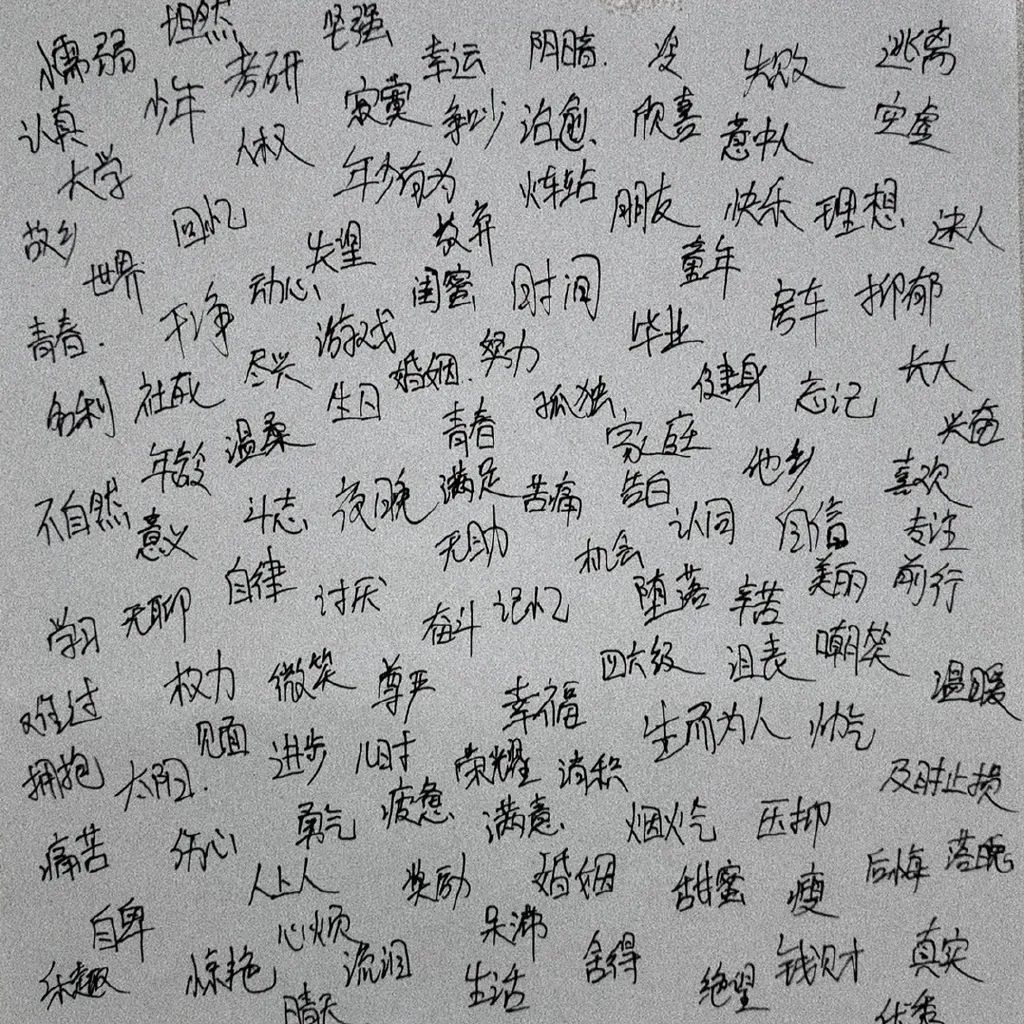 懦弱 坦然 坚强 幸运 阴暗 没 失败 逃离
认真 少年 考研 寂寞 争吵 治愈 欣喜 意中人 空虚
大学 人权 年少有为 炸站 朋友 快乐 理想 迷人
故乡 回忆 失望 放弃 童年
世界 动心 闺蜜 时间 房车 抑郁
青春 干净 游戏 努力 毕业
名利 社死 尽兴 生日 婚姻 孤独 健身 忘记 长大
年龄 温柔 青春 家庭 他乡 兴奋
不自然 意义 斗志 夜晚 满足 苦痛 告白 认同 自信 喜欢 专注
学习 无聊 自律 讨厌 无助 机会 堕落 辛苦 美丽 前行
奋斗 记忆
难过 权力 微笑 尊严 幸福 四六级 泪表 嘲笑 温暖
拥抱 太阳 见面 进步 儿时 荣耀 消积 生而为人 帅气 及时止损
痛苦 伤心 勇气 疲惫 满意 烟火气 压抑 后悔 落魄
人上人 奖励 婚姻 甜蜜 瘦
自卑 心烦 呆滞 舍得 钱财 真实
乐趣 惊艳 流泪 生活 绝望
晴天 优秀